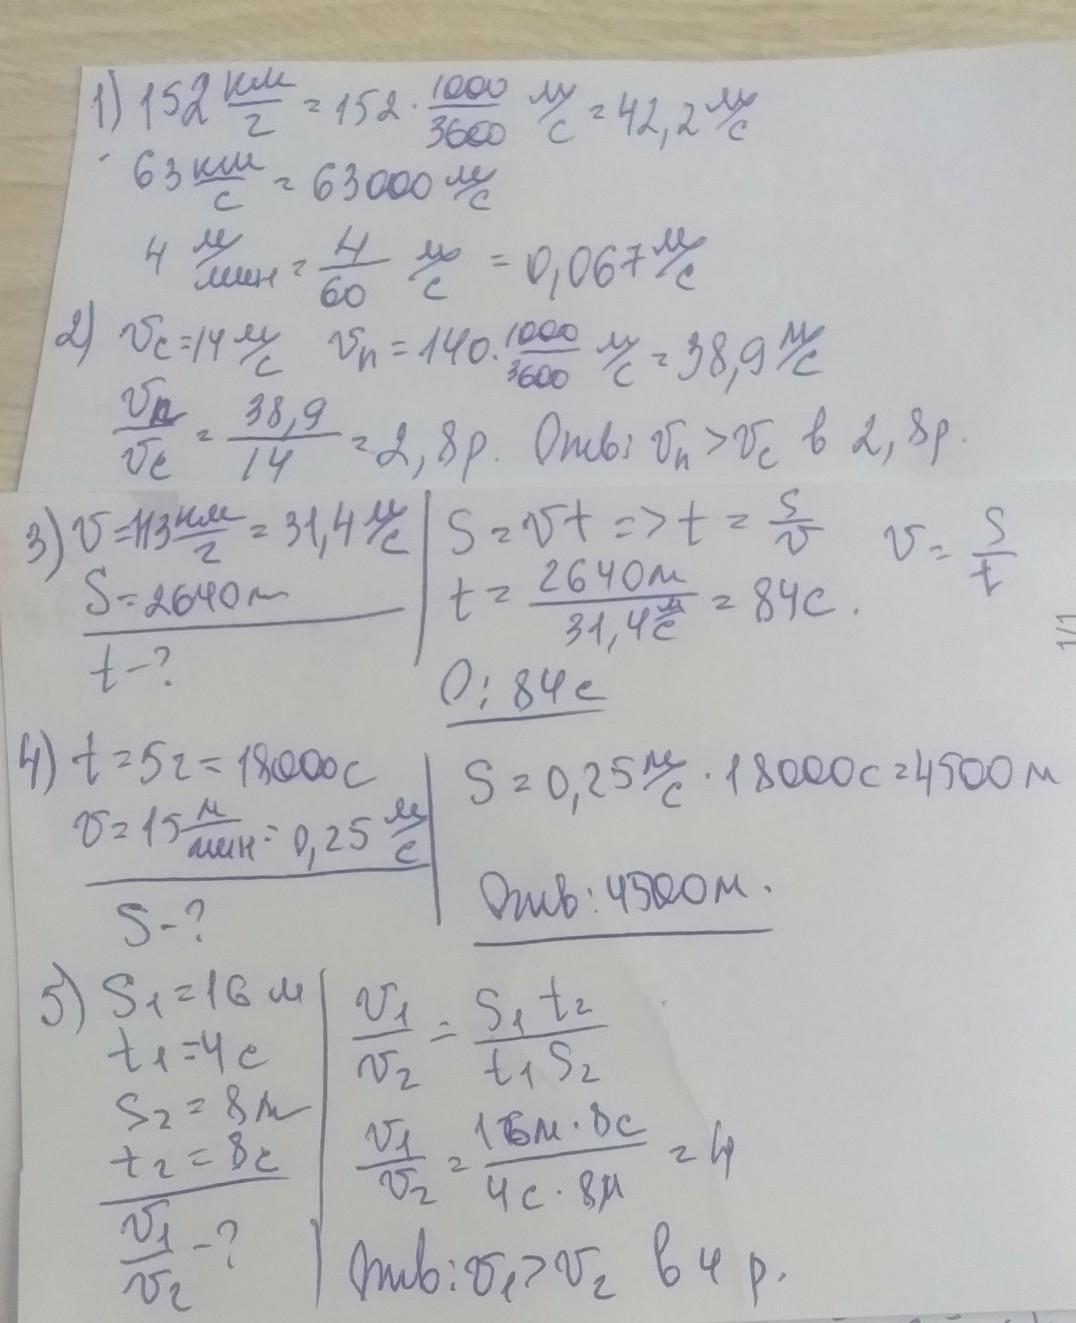 1) 152 км/г = 152 · 1000/3600 м/с = 42,2 м/с
63 км/с = 63000 м/с
4 м/мин = 4/60 м/с = 0,067 м/с
2) Vс = 14 м/с Vп = 140 · 1000/3600 м/с = 38,9 м/с
Vп/Vс = 38,9/14 = 2,8 р. Отв: Vп > Vс в 2,8 р.
3) V = 113 км/г = 31,4 м/с
S = 2640 м
t - ?
S = Vt => t = S/V V = S/t
t = 2640 м/31,4 м/с = 84 с.
О: 84 с
4) t = 5 г = 18000 с
V = 15 м/мин = 0,25 м/с
S - ?
S = 0,25 м/с · 18000 с = 4500 м
Отв: 4500 м.
5) S1 = 16 м
t1 = 4 с
S2 = 8 м
t2 = 8 с
V1/V2 - ?
V1/V2 = S1 t2/t1 S2
V1/V2 = 16 м · 8 с/4 с · 8 м = 4
Отв: V1 > V2 в 4 р.